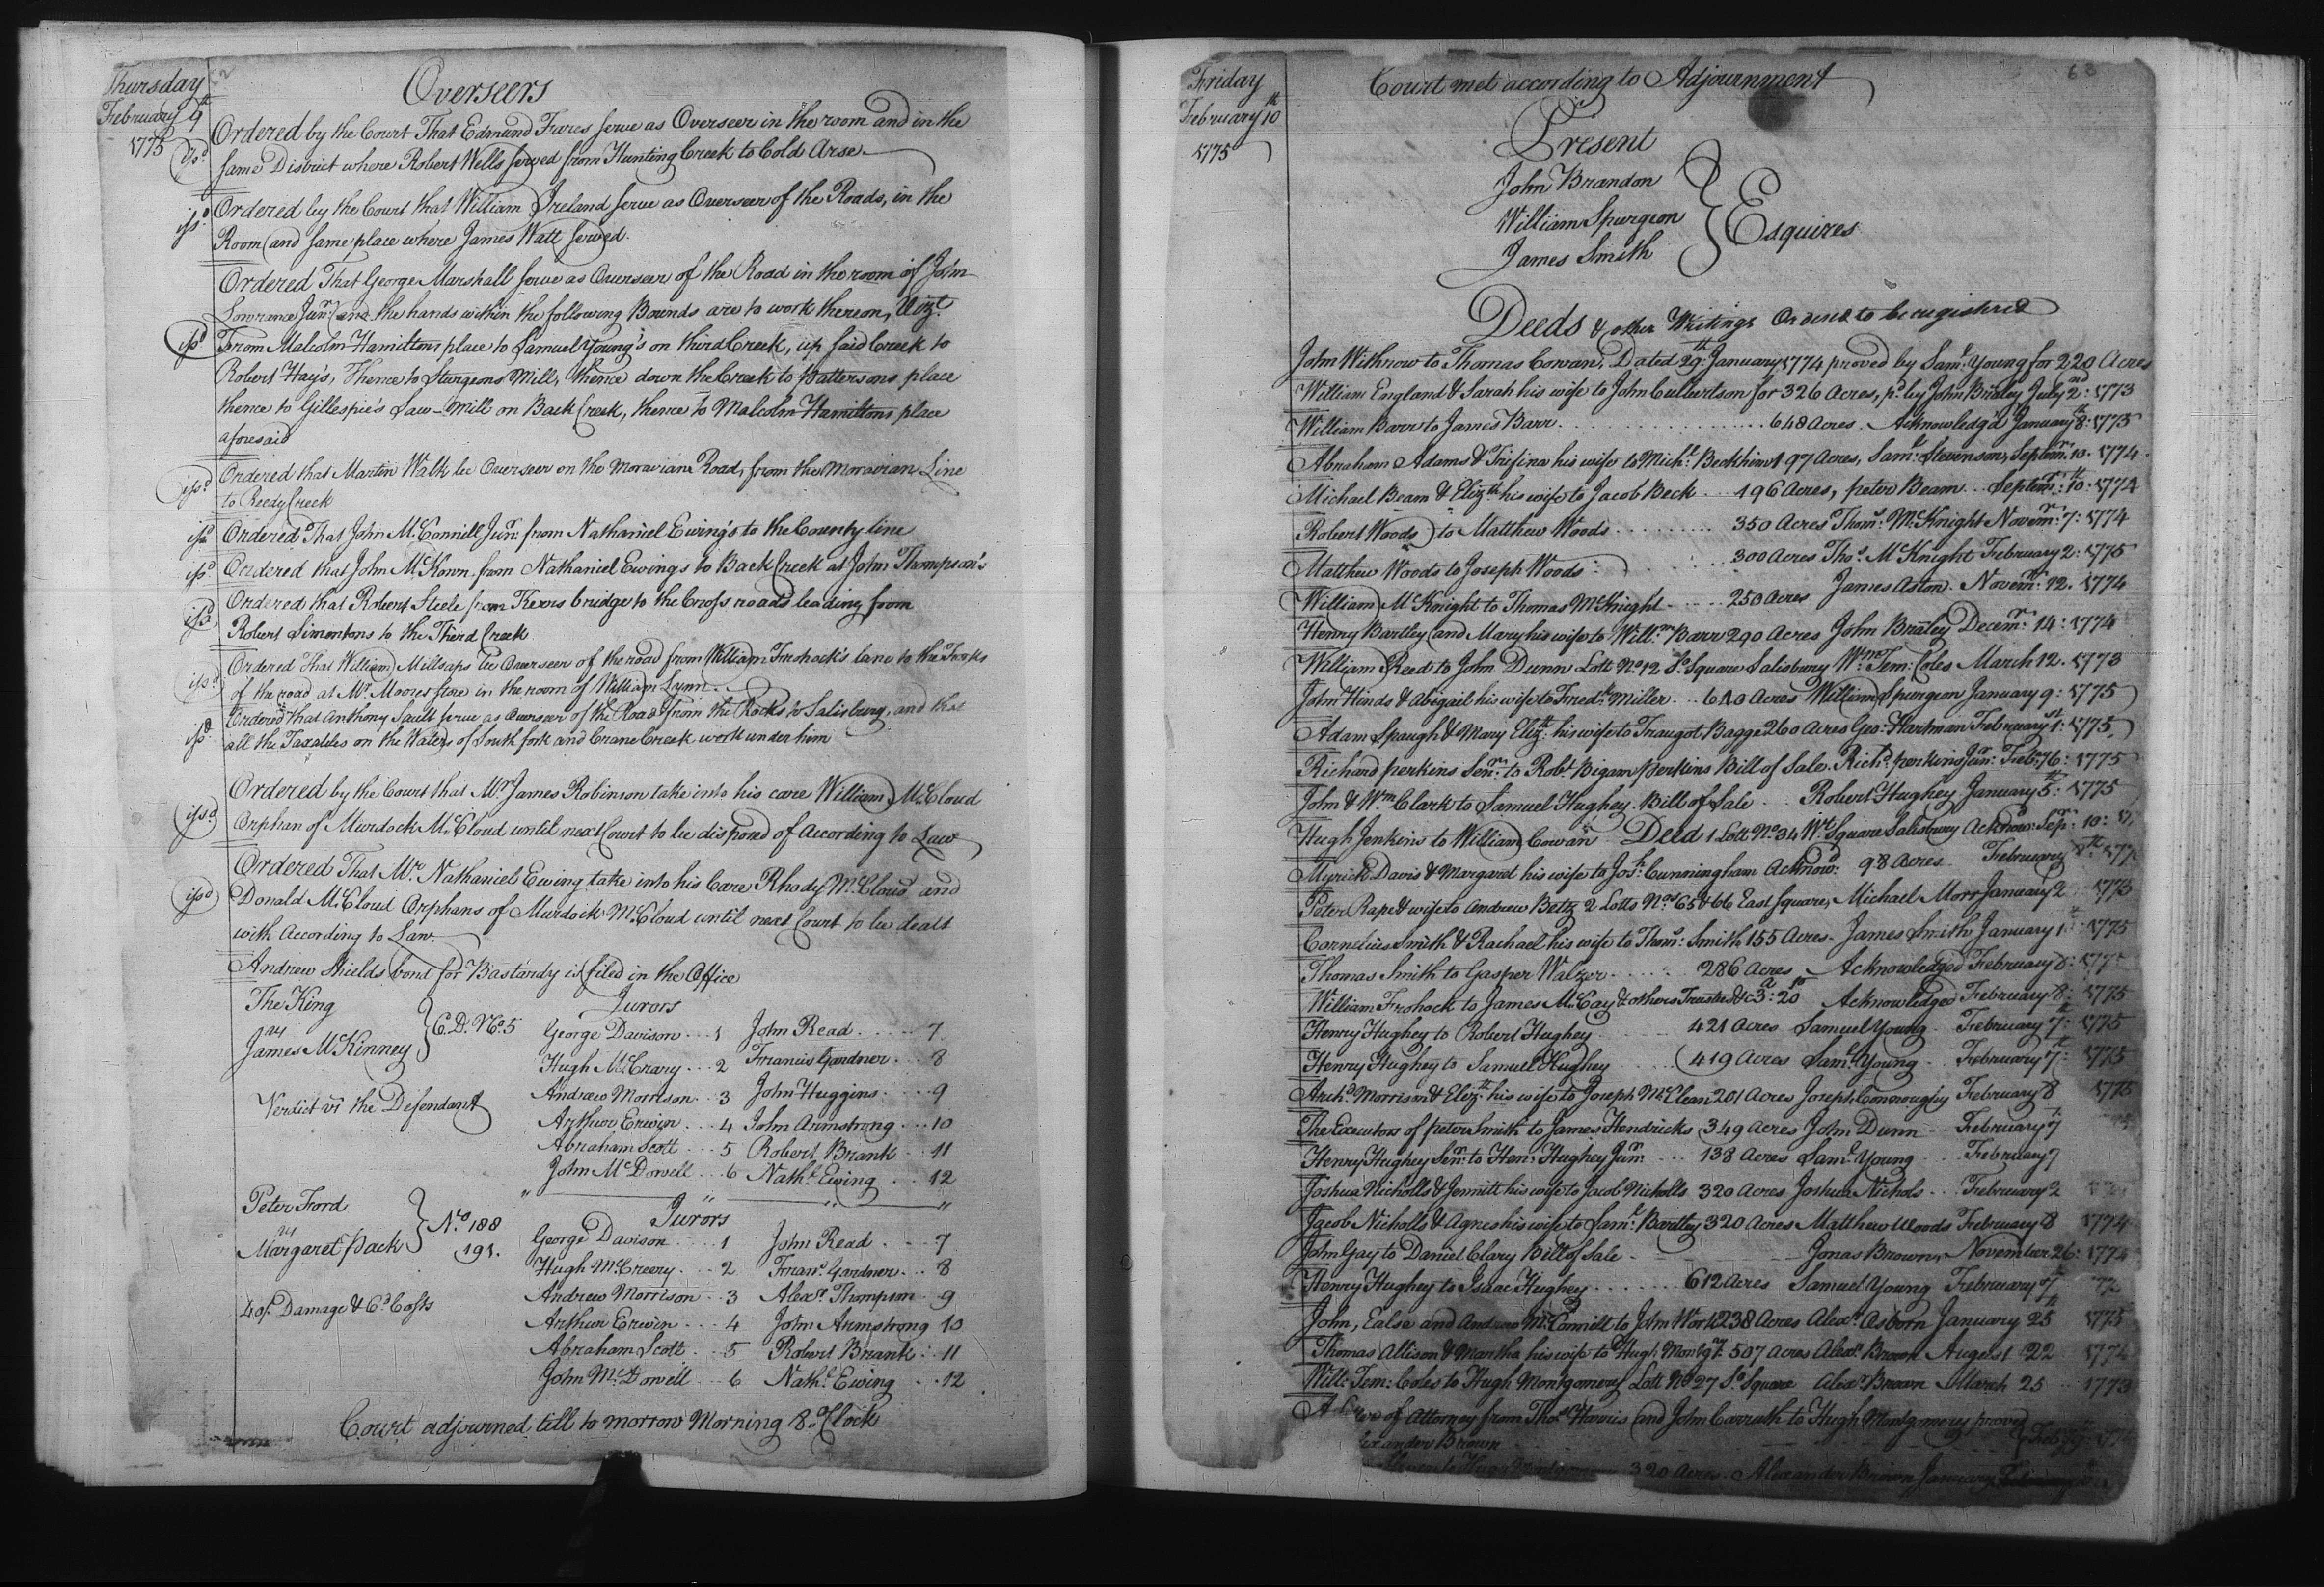 Thursday
February 9th
1775
62
Overseers
Ordered by the Court That Edmund Fares serve as Overseer in the room and in the
issd
same District where Robert Wells served from Hunting Creek to Cold Arse
Ordered by the Court that William Ireland serve as Overseer of the Roads, in the
issd
Room and same place where James Watt served.
Ordered That George Marshall serve as Overseer of the Road in the room of John
Lowrance Junr. and the hands within the following Bounds are to work thereon, Vizt.
issd
From Malcolm Hamiltons place to Samuel Young's on third Creek, up said Creek to
Robert Hay's, Thence to Sturgeons Mill, thence down the Creek to Pattersons place
thence to Gillespie's Saw-Mill on Back Creek, thence to Malcolm Hamiltons place
aforesaid
issd
Ordered that Martin Walk be Overseer on the Moravian Road, from the Moravian Line
to Reedy Creek
issd
Ordered That John McConnill Junr. from Nathaniel Ewing's to the County line
issd
Ordered that John McKown from Nathaniel Ewings to Back Creek at John Thompson's
issd
Ordered that Robert Steele from Kerrs bridge to the Cross roads leading from
Robert Simontons to the Third Creek
issd
Ordered That William Millsaps be Overseer of the road from William Frohock's lane to the Forks
of the road at Mr. Moores store in the room of William Lynn.
issd
Ordered that Anthony Sault serve as Overseer of the Road from the Rocks to Salisbury, and that
all the Taxables on the Waters of South fork and Crane Creek work under him
Ordered by the Court that Mr James Robinson take into his care William McCloud
issd
Orphan of Murdock McCloud until next Court to be disposed of According to Law
Ordered That Mr. Nathaniel Ewing take into his Care Rhody McCloud and
issd
Donald McCloud Orphans of Murdock McCloud until next Court to be dealt
with According to Law.
Andrew Shields bond for Bastardy is filed in the Office
The King
vs
James McKinney
C. D. No. 5
Jurors
George Davison 1 John Read 7
Hugh McCrary 2 Francis Gardner 8
Andrew Morrison 3 John Huggins 9
Verdict vs the Defendant
Arthur Erwin 4 John Armstrong 10
Abraham Scott 5 Robert Brank 11
John McDowell 6 Nathl. Ewing 12
Peter Ford
vs
Margaret Pack
No. 188
191.
Jurors
George Davison 1 John Read 7
Hugh McCreery 2 Frans. Gardner 8
Andrew Morrison 3 Alexr. Thompson 9
40/. Damage & 6d Costs
Arthur Erwin 4 John Armstrong 10
Abraham Scott 5 Robert Brank 11
John McDowell 6 Nathl. Ewing 12
Court adjourned till to morrow Morning 8 oClock
Friday
February 10th
1775
63
Court met according to Adjournment
Present
John Brandon
William Spurgeon
James Smith
Esquires
Deeds & other Writings Ordered to be registered
John Withrow to Thomas Cowan, Dated 29th January 1774 proved by Saml. Young for 220 Acres
William England & Sarah his wife to John Culbertson for 326 Acres, pd. by John Braley July 2nd: 1773
William Barr to James Barr 648 Acres. Acknowledg'd January 8th: 1775
Abraham Adams & Trifina his wife to Michl. Beckhim 197 Acres, Saml. Stevenson, Septemr. 10. 1774
Michael Beam & Elizth. his wife to Jacob Beck 196 Acres, peter Beam Septemr. 10th 1774
Robert Woods to Matthew Woods 350 Acres Thoms. McKnight Novemr. 7: 1774
Matthew Woods to Joseph Woods 300 Acres Thos. McKnight February 2: 1775
William McKnight to Thomas McKnight 250 Acres James Aston. Novemr. 12. 1774
Henry Bartley and Mary his wife to Willm. Barr 290 Acres John Braley Decemr. 14: 1774
William Reed to John Dunn Lott No. 12 So. Square Salisbury Wm. Tem: Coles March 12. 1773
John Hinds & Abigail his wife to Fredk. Miller 640 Acres William Spurgeon January 9: 1775
Adam Spaugh & Mary Elizth. his wife to Traugot Bagge 260 Acres Geo. Hartman February 1st: 1775
Richard perkins Senr. to Robt. Bigam perkins Bill of Sale. Richd. perkins Junr. 1775
John & Wm. Clark to Samuel Hughey. Bill of Sale Robert Hughey January 5th: 1775
Hugh Jenkins to William Cowan Deed 1 Lott No. 34 Wt. Square Salisbury Acknow: Sepr. 10:
Myrick Davis & Margaret his wife to Josh. Cunningham Acknowd. 98 Acres February
Peter Rape & wife to Andrew Betz 2 Lotts Nos. 65 & 66 East Square, Michael Morr January 2 1773
Cornelius Smith & Rachael his wife to Thoms. Smith 155 Acres James Smith January 1 1775
Thomas Smith to Gasper Walzer 286 Acres Acknowledged February 8:
William Frohock to James McCay & others Trustees &c 3a: 20po Acknowledged February 8: 1775
Henry Hughey to Robert Hughey 421 Acres Samuel Young February 7th: 1775
Henry Hughey to Samuel Hughey 419 Acres Saml. Young February 7th: 1775
Archd. Morrison & Elizth. his wife to Joseph McClean 201 Acres Joseph Connoughy February 8 1775
The Executors of peter Smith to James Hendricks 349 Acres John Dunn February 7
Henry Hughey Senr. to Hen: Hughey Junr. 138 Acres Saml. Young February 7
Joshua Nicholls & Jennitt his wife to Jacob Nicholls 320 Acres Joshua Nichols February 2
Jacob Nicholls & Agnes his wife to Saml. Bartley 320 Acres Matthew Woods February 8 1774
John Gay to Daniel Clary Bill of Sale Jonas Brown, November 26: 1774
Henry Hughey to Isaac Hughey 612 Acres Samuel Young February 7th
John, Ealse and Andrew McConnill to John Work 238 Acres Alexr. Osborn January 25th 1775
Thomas Allison & Martha his wife to Hugh Montgy. 507 Acres Alexr. Brown August 22 1774
Willm. Tem: Coles to Hugh Montgomery Lott No. 27 So. Square Alexr. Brown March 25 1773
of Attorney from Thos. Harris and John Carruth to Hugh Montgomery proved
Brown
to Hugh Montgomery 320 Acres. Alexander Brown January